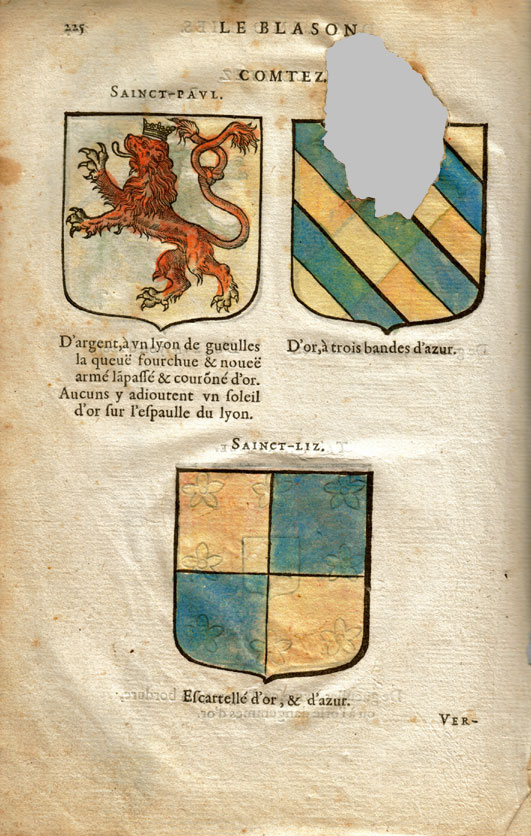 225 LE BLASON
COMTEZ.
SAINCT-PAVL.
D'argent, à vn lyon de gueulles
la queuë fourchue & noueë
armé lãpassé & courõné d'or.
Aucuns y adioutent vn soleil
d'or sur l'espaulle du lyon.
D'or, à trois bandes d'azur.
SAINCT-LIZ.
Escartellé d'or, & d'azur.
VER-